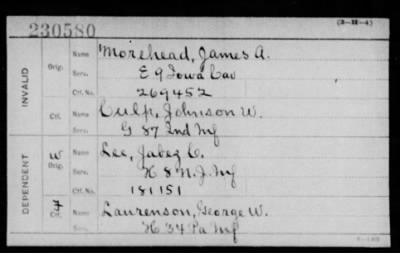 230580 (3-M-4)
INVALID
Orig. Name Morehead, James A.
Serv. E 9 Iowa Cav
Ctf. No. 269452
Ctf. Name Culp, Johnson W.
Serv. G 87 Ind Inf
DEPENDENT
W
Orig. Name Lee, Jabez C.
Serv. K 8 N.J. Inf
Ctf. No. 181151
Ctf. Name Laurenson, George W.
Serv. H 34 Pa Inf